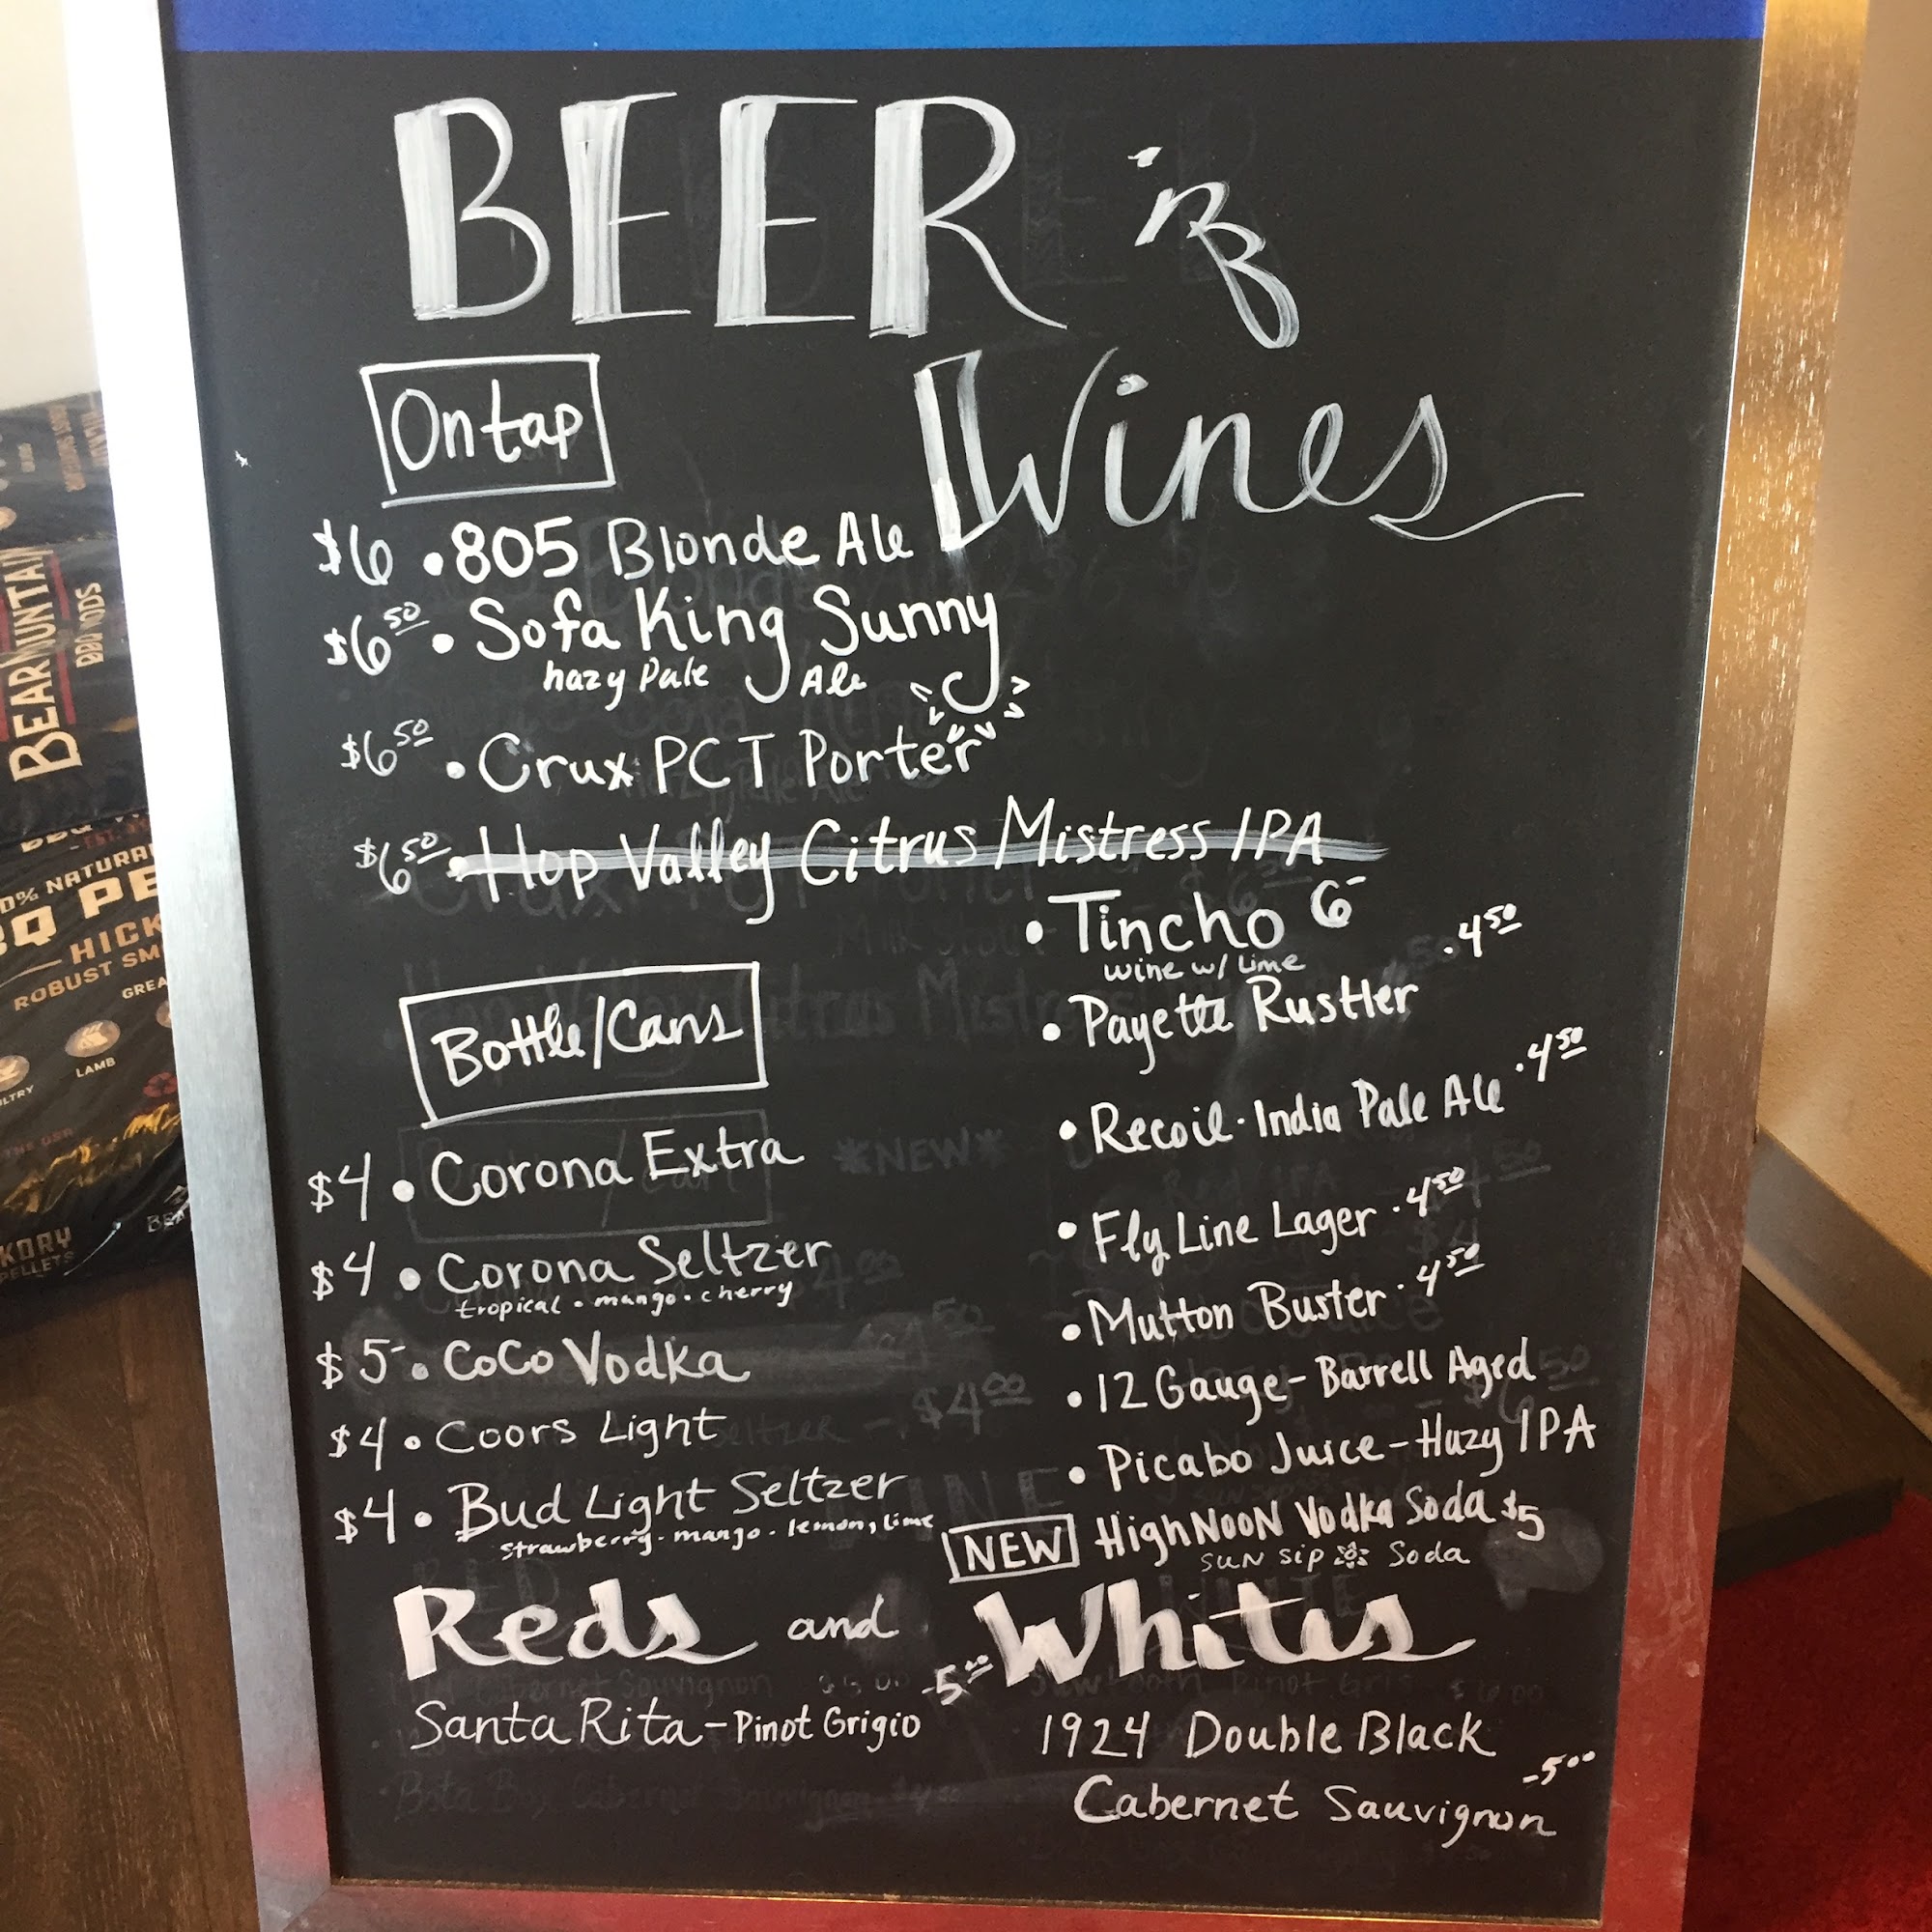 BEER 'n
Wines
On tap
$6 • 805 Blonde Ale
$6.50 • Sofa King Sunny
hazy Pale Ale
$6.50 • Crux PCT Porter
$6.50 • Hop Valley Citrus Mistress IPA
Bottle/Cans
$4 • Corona Extra
$4 • Corona Seltzer
tropical • mango • cherry
$5- • CoCo Vodka
$4 • Coors Light
$4 • Bud Light Seltzer
strawberry - mango - lemon, lime
• Tincho 6-
wine w/ Lime
• Payette Rustler • 4.50
• Recoil • India Pale Ale • 4.50
• Fly Line Lager • 4.50
• Mutton Buster • 4.50
• 12 Gauge - Barrell Aged
• Picabo Juice - Hazy IPA
NEW HighNooN Vodka Soda $5
SUN Sip Soda
Reds and Whites
Santa Rita - Pinot Grigio - 5.00
1924 Double Black
Cabernet Sauvignon - 5.00
*NEW*
BEAR MOUNTAIN
BBQ WOODS
HICK
ROBUST SM
LAMB